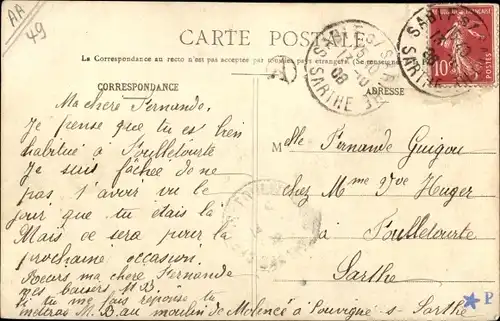 AA
49
CARTE POSTALE
La Correspondance au recto n'est pas acceptée par tous les pays étrangers. (Se renseigner
CORRESPONDANCE
ADRESSE
SARTHE
08
SARTHE
10
POSTES
Ma chère Fernande,
Je pense que tu es bien
habitué à Foulletourte
Je suis fâchée de ne
pas t'avoir vu le
jour que tu étais là
Mais ce sera pour la
prochaine occasion.
Reçois ma chère Fernande
mes baisers MB.
Si tu me fais réponse tu
mettras M.B. au moulin de Molencé à Pouvigné-s-Sarthe
Melle Fernande Guigou
chez Mme Vve Heuger
à Foulletourte
Sarthe
P